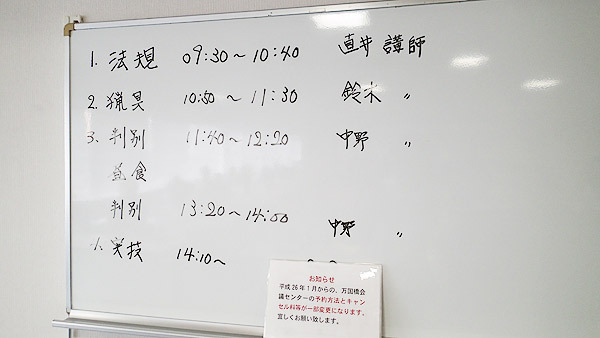 1. 法規 09:30～10:40 直井 講師
2. 猟具 10:50 ～ 11:30 鈴木 〃
3. 判別 11:40～12:20 中野 〃
昼食
判別 13:20～14:00 中野 〃
4. 実技 14:10～
お知らせ
平成26年1月からの、万国橋会
議センターの予約方法とキャン
セル料等が一部変更になります。
宜しくお願い致します。